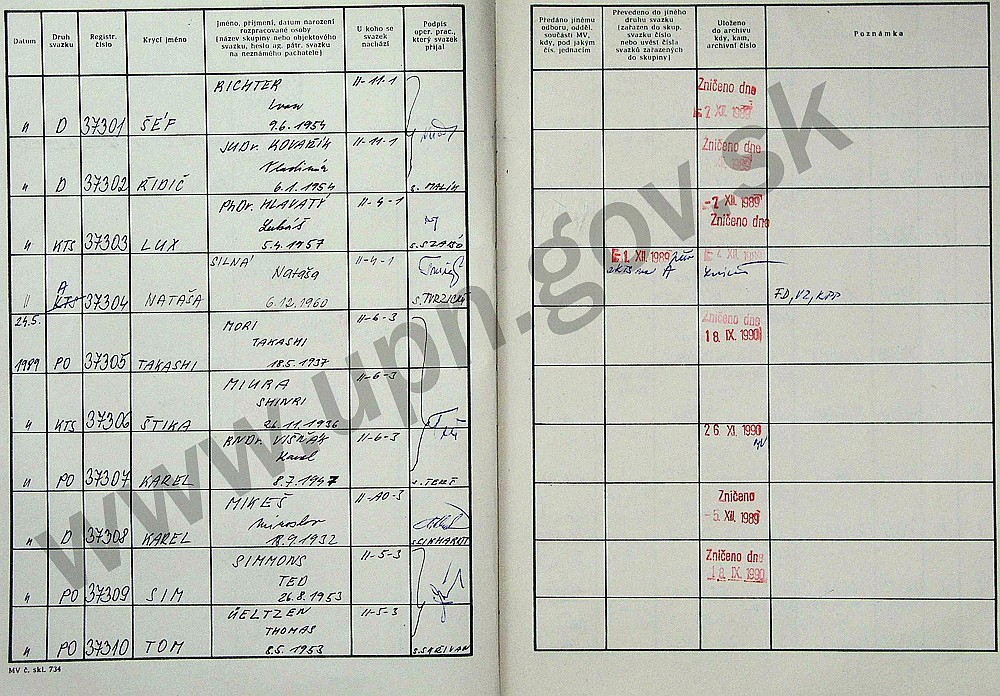 Datum
Druh svazku
Registr. číslo
Krycí jméno
Jméno, příjmení, datum narození
rozpracované osoby
(název skupiny nebo objektového
svazku, heslo ag. pátr. svazku
na neznámého pachatele)
U koho se
svazek
nachází
Podpis
oper. prac.,
který svazek
přijal
Předáno jinému
odboru, odděl.
součásti MV,
kdy, pod jakým
čís. jednacím
Převedeno do jiného
druhu svazku
(zařazen do skup.
svazku číslo
nebo uvést čísla
svazků zařazených
do skupiny)
Uloženo
do archivu
kdy, kam,
archivní číslo
Poznámka
RICHTER II-11-1
Ivan
" D 37301 ŠÉF 9.6.1954
Zničeno dne
2 XII. 1989
JUDr. KOVAŘÍK II-11-1
Vladimír
" D 37302 ŘIDIČ 6.1.1954 s. MALÍK
Zničeno dne
PhDr. HLAVATÝ II-4-1
Lubáš
" KTS 37303 LUX 5.4.1957 s. SZABÓ
-7. XII. 1989
Zničeno dne
SILNÁ II-4-1
Nataša
A
" KTS 37304 NATAŠA 6.12.1960 s. TVRZICKÝ
1. XII. 1989
z KTS na A
XII. 1989
FD, VZ, KPP
24.5. MORI II-6-3
TAKASHI
1989 PO 37305 TAKASHI 18.5.1937
Zničeno dne
18. IX. 1990
MIURA II-6-3
SHINRI
" KTS 37306 ŠTIKA 26.11.1936
RNDr. VIŠŇÁK II-6-3
Karel
" PO 37307 KAREL 8.7.1947
26. XI. 1990
MV
MIKEŠ II-10-3
Miroslav
" D 37308 KAREL 18.9.1932 s. EIKHARDT
Zničeno
-5. XII. 1989
SIMMONS II-5-3
TED
" PO 37309 SIM 26.8.1953
Zničeno dne
18. IX. 1990
ÜELTZEN II-5-3
THOMAS
" PO 37310 TOM 8.5.1953 s. SKŘIVAN
MV č. skl. 734
www.upn.gov.sk